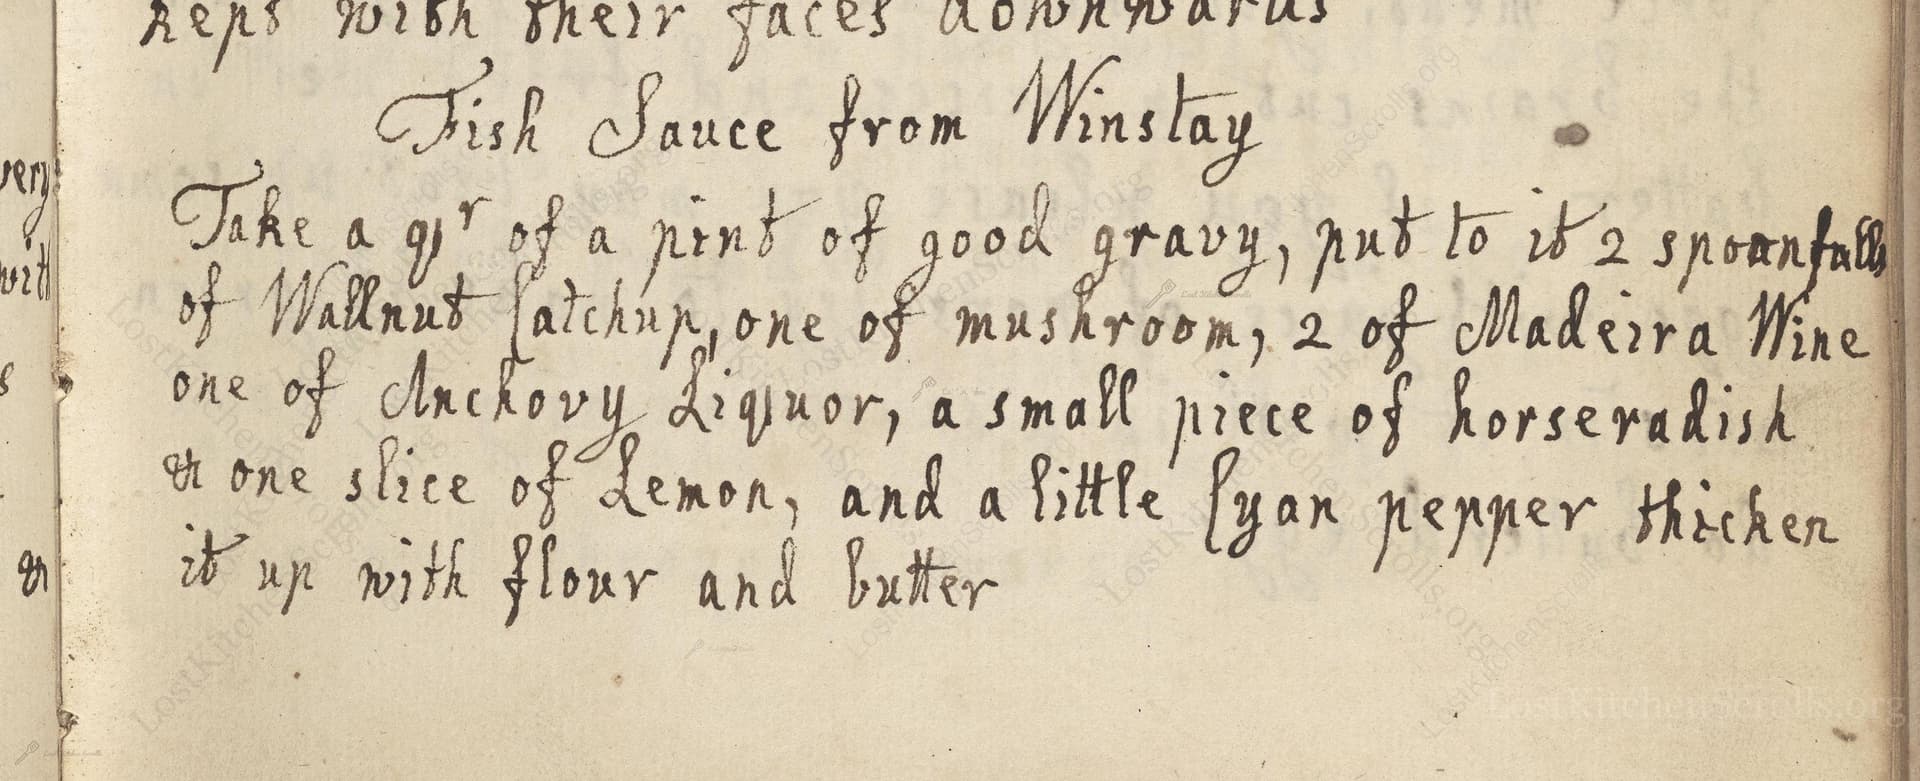 kept with their faces downwards
Fish Sauce from Winstay
Take a qr of a pint of good gravy, put to it 2 spoonfulls
of Wallnut Catchup, one of mushroom, 2 of Madeira Wine
one of Anchovy Liquor, a small piece of horseradish
& one slice of Lemon, and a little Cyan pepper thicken
it up with flour and butter
very
with
s
&
LostKitchenScrolls.org